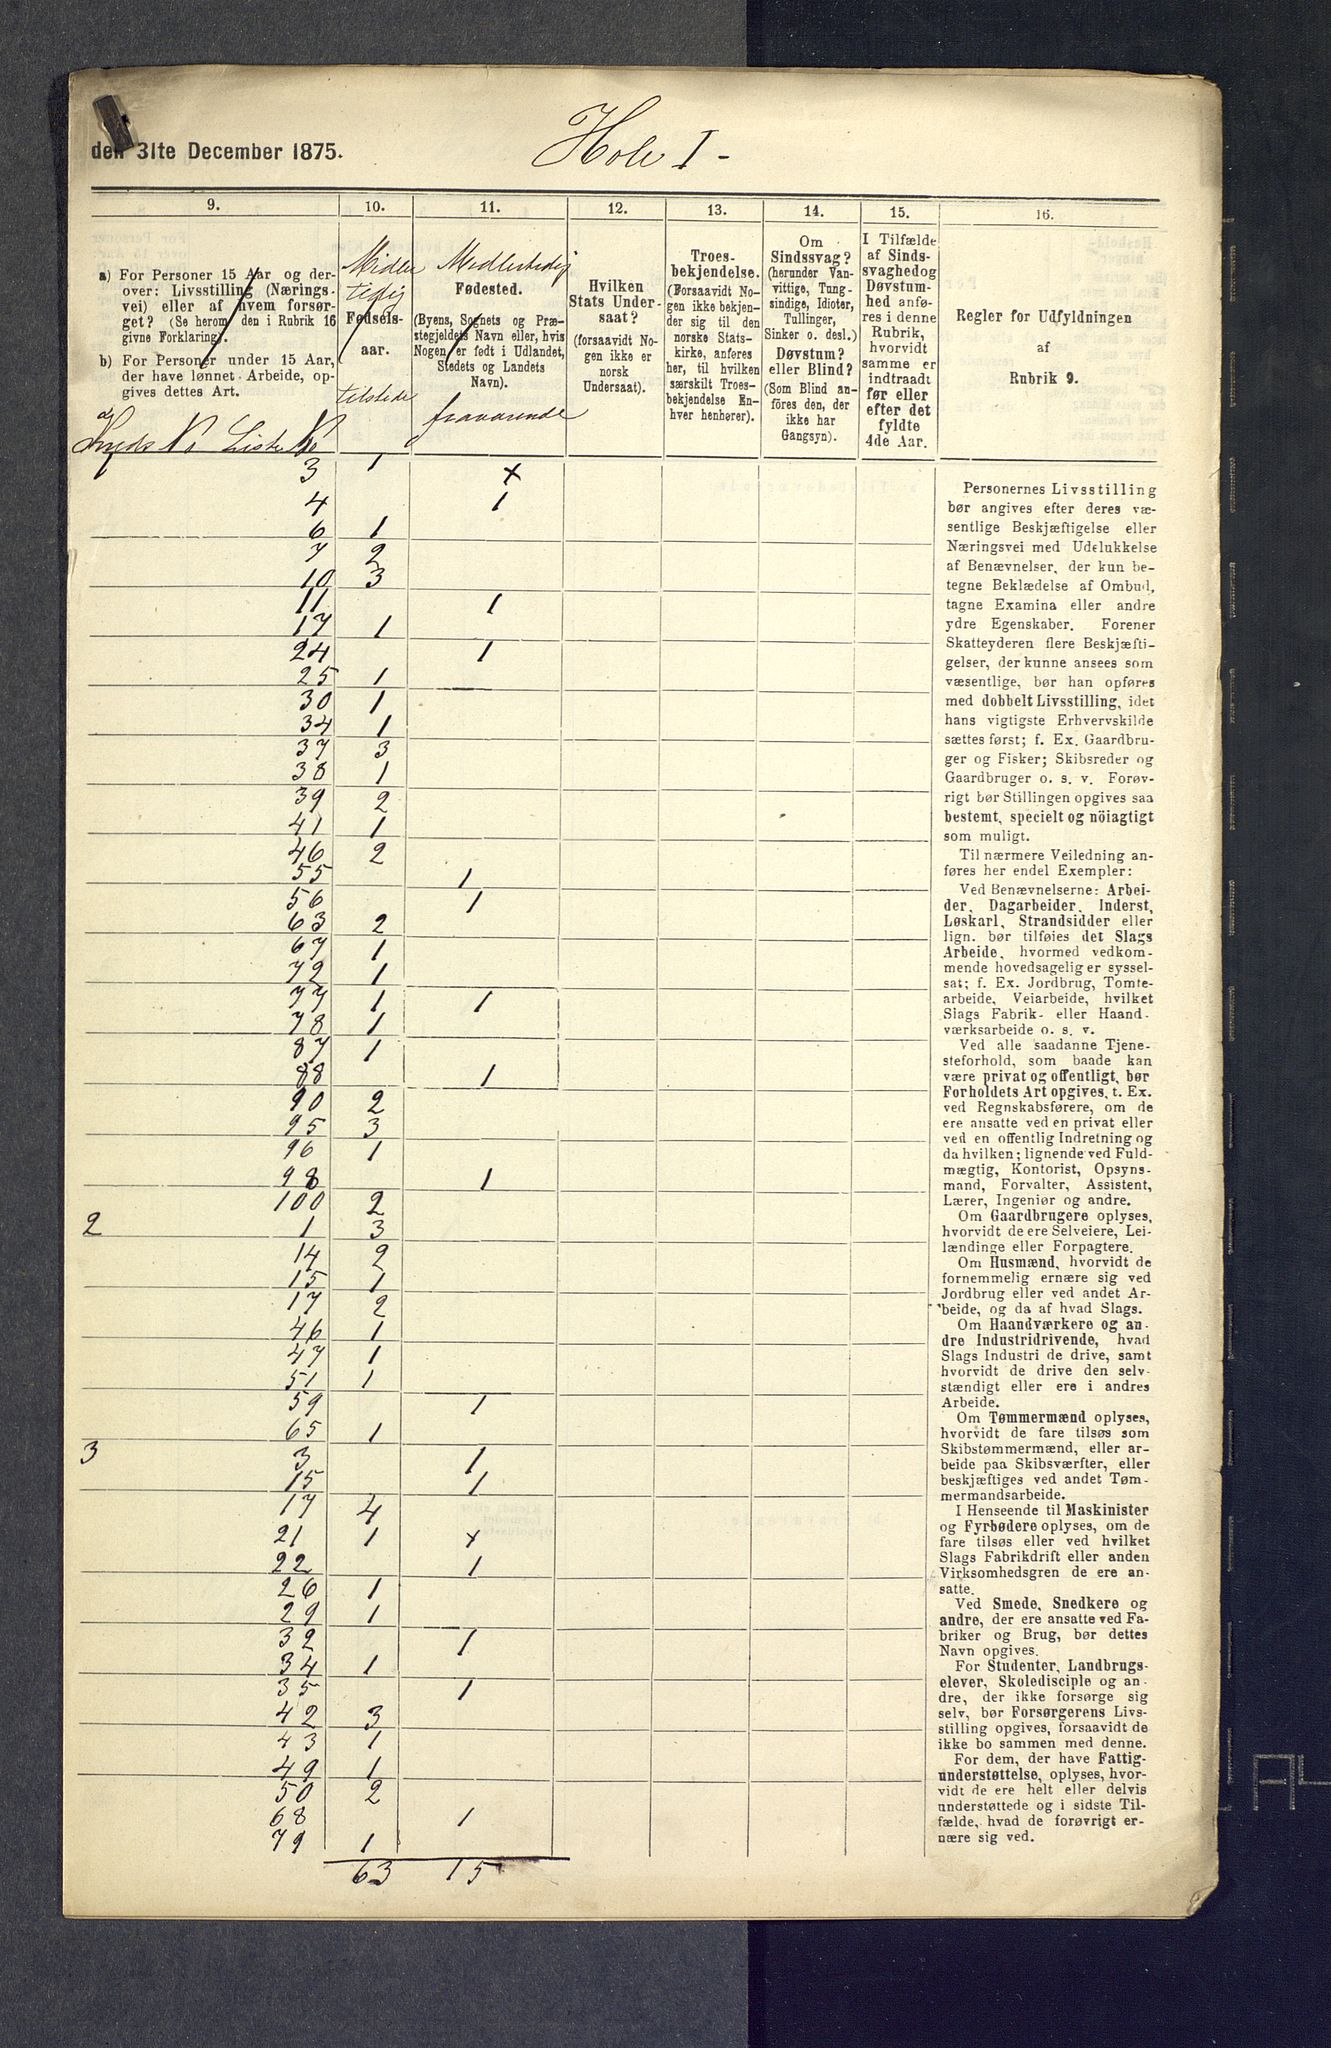 Hole I -
den 31te December 1875.
9. 10. 11. 12. 13. 14. 15. 16.
a) For Personer 15 Aar og der-
over: Livsstilling (Nærings-
vei) eller af hvem forsør-
get? (Se herom den i Rubrik 16
givne Forklaring).
b) For Personer under 15 Aar,
der have lønnet Arbeide, op-
gives dettes Art.
Kreds No Liste No
Midler
tidig
Fødsels-
aar.
tilstede
Midlertidig
Fødested.
(Byens, Sognets og Præ-
stegjeldets Navn eller, hvis
Nogen er født i Udlandet,
Stedets og Landets
Navn).
fraværende
Hvilken
Stats Under-
saat?
(forsaavidt No-
gen ikke er
norsk
Undersaat).
Troes-
bekjendelse.
(Forsaavidt No-
gen ikke bekjen-
der sig til den
norske Stats-
kirke, anføres
her, til hvilken
særskilt Troes-
bekjendelse En-
hver henhører).
Om
Sindssvag?
(herunder Van-
vittige, Tung-
sindige, Idioter,
Tullinger,
Sinker o. desl.)
Døvstum?
eller Blind?
(Som Blind an-
føres den, der
ikke har
Gangsyn).
I Tilfælde
af Sinds-
svaghedog
Døvstum-
hed anfø-
res i denne
Rubrik,
hvorvidt
samme er
indtraadt
før eller
efter det
fyldte
4de Aar.
Regler for Udfyldningen
af
Rubrik 9.
3 1 x
4 1
6 1
7 2
10 3
11 1
17 1
24 1
25 1
30 1
34 1
37 3
38 1
39 2
41 1
46 2
55 1
56 1
63 2
67 1
72 1
77 1 1
78 1
87 1
88 1
90 2
95 3
96 1
98 1
100 2
2 1 3
14 2
15 1
17 2
46 1
47 1
51 1
59 1
65 1
3 3 1
15 1
17 4
21 1 x
22 1
26 1
29 1
32 1
34 1
35 1
42 3
43 1
49 1
50 2
68 1
79 1
63 15
Personernes Livsstilling
bør angives efter deres væ-
sentlige Beskjæftigelse eller
Næringsvei med Udelukkelse
af Benævnelser, der kun be-
tegne Beklædelse af Ombud,
tagne Examina eller andre
ydre Egenskaber. Forener
Skatteyderen flere Beskjæfti-
gelser, der kunne ansees som
væsentlige, bør han opføres
med dobbelt Livsstilling, idet
hans vigtigste Erhvervskilde
sættes først; f. Ex. Gaardbru-
ger og Fisker; Skibsreder og
Gaardbruger o. s. v. Forøv-
rigt bør Stillingen opgives saa
bestemt, specielt og nöiagtigt
som muligt.
Til nærmere Veiledning an-
føres her endel Exempler:
Ved Benævnelserne: Arbei-
der, Dagarbeider, Inderst,
Løskarl, Strandsidder eller
lign. bør tilføies det Slags
Arbeide, hvormed vedkom-
mende hovedsagelig er syssel-
sat; f. Ex. Jordbrug, Tomte-
arbeide, Veiarbeide, hvilket
Slags Fabrik- eller Haand-
værksarbeide o. s. v.
Ved alle saadanne Tjene-
steforhold, som baade kan
være privat og offentligt, bør
Forholdets Art opgives, t. Ex.
ved Regnskabsførere, om de
ere ansatte ved en privat eller
ved en offentlig Indretning og
da hvilken; lignende ved Fuld-
mægtig, Kontorist, Opsyns-
mand, Forvalter, Assistent,
Lærer, Ingeniør og andre.
Om Gaardbrugere oplyses,
hvorvidt de ere Selveiere, Lei-
lændinge eller Forpagtere.
Om Husmænd, hvorvidt de
fornemmelig ernære sig ved
Jordbrug eller ved andet Ar-
beide, og da af hvad Slags.
Om Haandværkere og an-
dre Industridrivende, hvad
Slags Industri de drive, samt
hvorvidt de drive den selv-
stændigt eller ere i andres
Arbeide.
Om Tømmermænd oplyses,
hvorvidt de fare tilsøs som
Skibstømmermænd, eller ar-
beide paa Skibsværfter, eller
beskjæftiges ved andet Tøm-
mermandsarbeide.
I Henseende til Maskinister
og Fyrbødere oplyses, om de
fare tilsøs eller ved hvilket
Slags Fabrikdrift eller anden
Virksomhedsgren de ere an-
satte.
Ved Smede, Snedkere og
andre, der ere ansatte ved Fa-
briker og Brug, bør dettes
Navn opgives.
For Studenter, Landbrugs-
elever, Skoledisciple og an-
dre, der ikke forsørge sig
selv, bør Forsørgerens Livs-
stilling opgives, forsaavidt de
ikke bo sammen med denne.
For dem, der have Fattig-
understøttelse, oplyses, hvor-
vidt de ere helt eller delvis
understøttede og i sidste Til-
fælde, hvad de forøvrigt er-
nære sig ved.